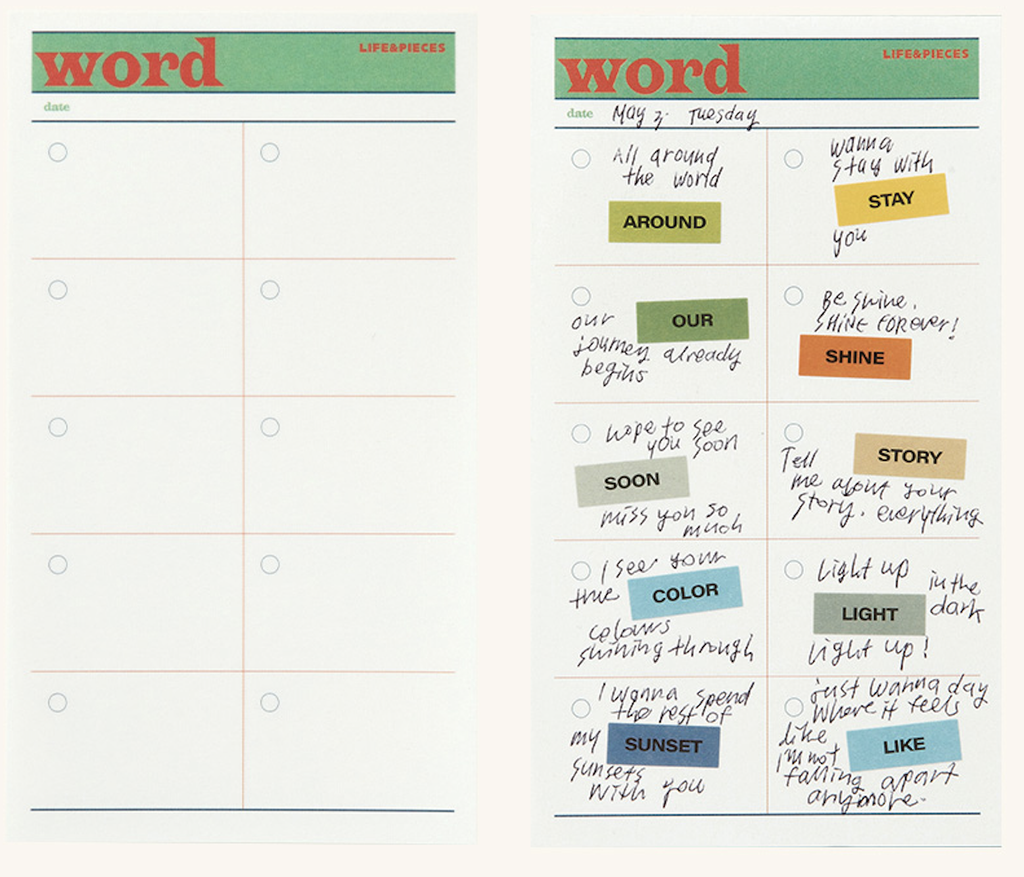 word
LIFE&PIECES
date
word
LIFE&PIECES
date May 3. Tuesday
All around
the world
AROUND
wanna
stay with
STAY
you
our
OUR
journey already
begins
Be shine.
SHINE FOREVER!
SHINE
Hope to see
you soon
SOON
miss you so
much
Tell
STORY
me about your
story. everything
I see your
true
COLOR
colours
shining through
Light up
in the
dark
LIGHT
Light up!
I wanna spend
the rest of
my
SUNSET
sunsets
with you
just wanna day
where it feels
like
I'm not
LIKE
falling apart
anymore.